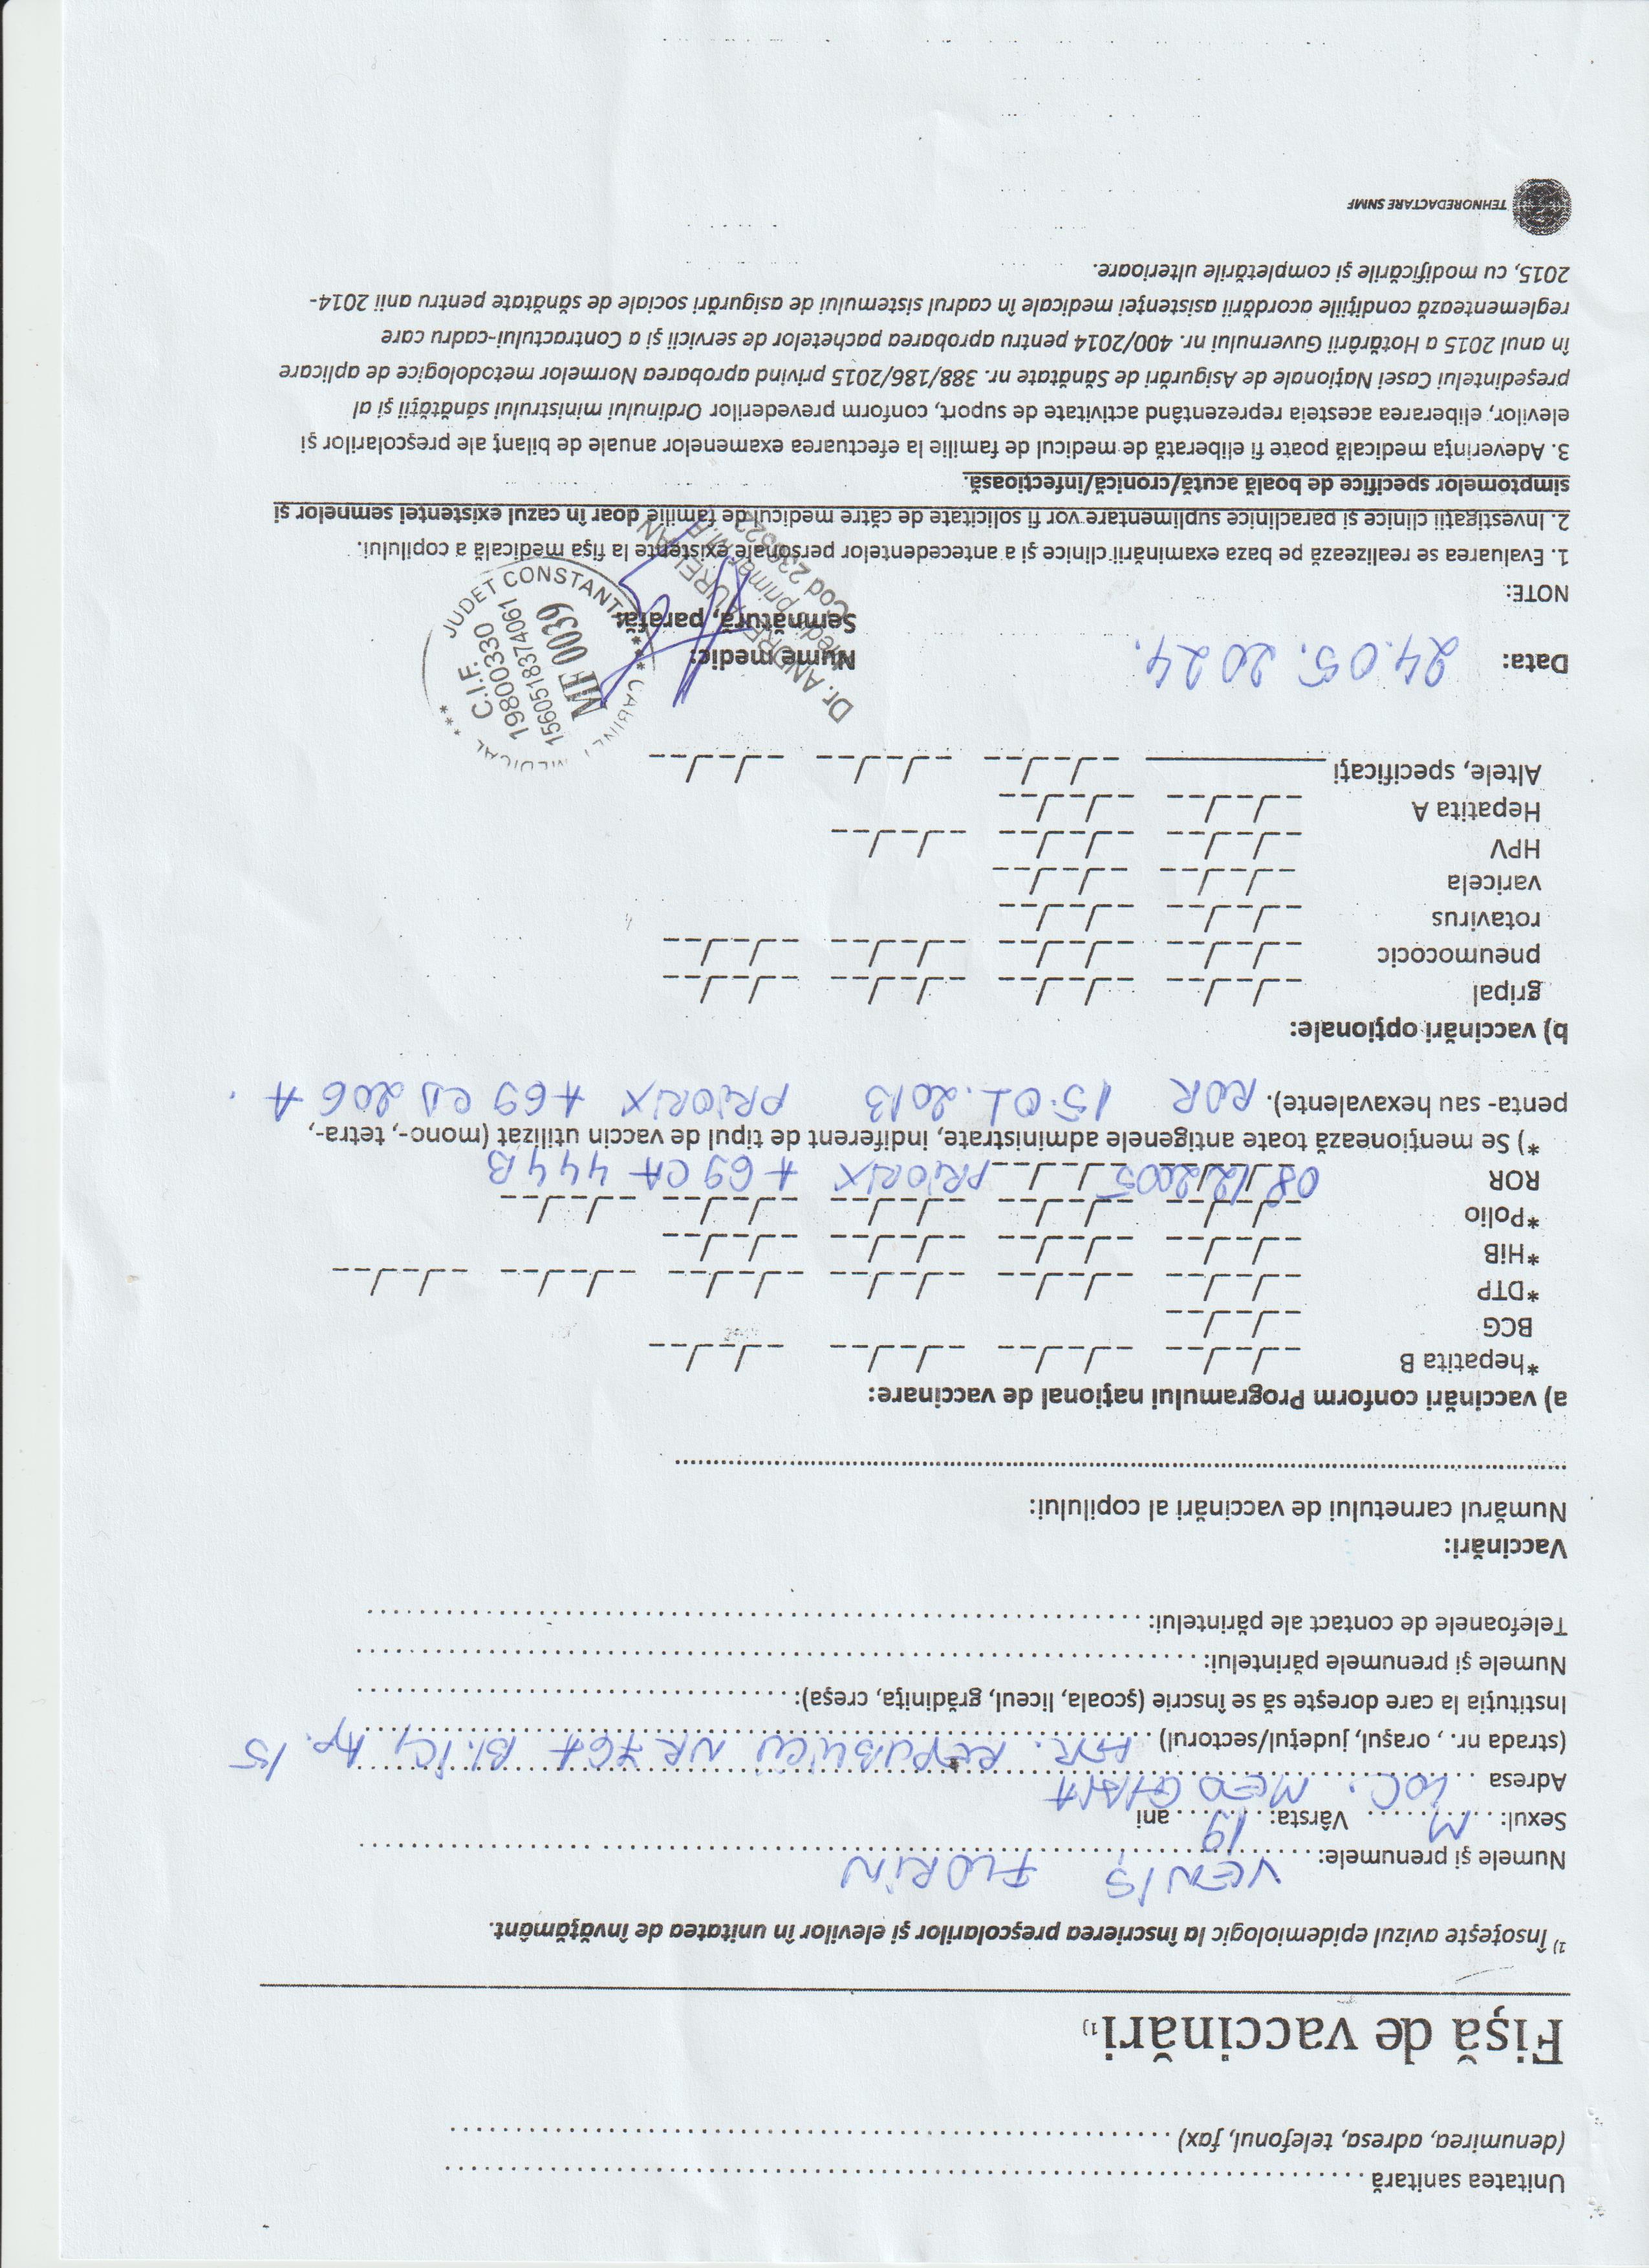 Unitatea sanitară ................................................................
(denumirea, adresa, telefonul, fax) ................................................................
Fișă de vaccinări1)
1) Însoţeşte avizul epidemiologic la înscrierea preşcolarilor şi elevilor în unitatea de învăţământ.
Numele şi prenumele: VENIȘ FLORIN
Sexul: M Vârsta: 19 ani
Adresa LOC. MEDGIDIA
(strada nr. , oraşul, judeţul/sectorul) STR. REPUBLICII NR 76A Bl. IC1 Ap. 15
Instituţia la care doreşte să se înscrie (şcoala, liceul, grădiniţa, creşa): ................................
Numele şi prenumele părintelui: ................................................................
Telefoanele de contact ale părintelui: ................................................................
Vaccinări:
Numărul carnetului de vaccinări al copilului:
................................................................
a) vaccinări conform Programului naţional de vaccinare:
*hepatita B _ _/_ _/_ _ _ _/_ _/_ _ _ _/_ _/_ _ _ _/_ _/_ _
BCG _ _/_ _/_ _
*DTP _ _/_ _/_ _ _ _/_ _/_ _ _ _/_ _/_ _ _ _/_ _/_ _ _ _/_ _/_ _ _ _/_ _/_ _
*HiB _ _/_ _/_ _ _ _/_ _/_ _ _ _/_ _/_ _ _ _/_ _/_ _
*Polio _ _/_ _/_ _ _ _/_ _/_ _ _ _/_ _/_ _ _ _/_ _/_ _ _ _/_ _/_ _
ROR 08/12/2005 _ _/_ _/_ _ PRIORIX A69CA444B
*) Se menţionează toate antigenele administrate, indiferent de tipul de vaccin utilizat (mono-, tetra-,
penta- sau hexavalente). ROR 15.01.2013 PRIORIX A69CD206A.
b) vaccinări opţionale:
gripal _ _/_ _/_ _ _ _/_ _/_ _ _ _/_ _/_ _ _ _/_ _/_ _
pneumococic _ _/_ _/_ _ _ _/_ _/_ _ _ _/_ _/_ _ _ _/_ _/_ _
rotavirus _ _/_ _/_ _ _ _/_ _/_ _
varicela _ _/_ _/_ _ _ _/_ _/_ _
HPV _ _/_ _/_ _ _ _/_ _/_ _ _ _/_ _/_ _
Hepatita A _ _/_ _/_ _ _ _/_ _/_ _
Altele, specificaţi ____________ _ _/_ _/_ _ _ _/_ _/_ _ _ _/_ _/_ _
CABINET MEDICAL *** JUDET CONSTANT ***
C.I.F.
19800330
1560518374061
MF 0039
Data: 24.05.2024.
Nume medic:
Semnătură, parafă:
Dr. ANDREI AURELIAN
Medic primar M.F.
Cod
NOTE:
1. Evaluarea se realizează pe baza examinării clinice şi a antecedentelor personale existente la fişa medicală a copilului.
2. Investigaţii clinice şi paraclinice suplimentare vor fi solicitate de către medicul de familie doar în cazul existenţei semnelor şi
simptomelor specifice de boală acută/cronică/infecţioasă.
3. Adeverinţa medicală poate fi eliberată de medicul de familie la efectuarea examenelor anuale de bilanţ ale preşcolarilor şi
elevilor, eliberarea acesteia reprezentând activitate de suport, conform prevederilor Ordinului ministrului sănătăţii şi al
preşedintelui Casei Naţionale de Asigurări de Sănătate nr. 388/186/2015 privind aprobarea Normelor metodologice de aplicare
în anul 2015 a Hotărârii Guvernului nr. 400/2014 pentru aprobarea pachetelor de servicii şi a Contractului-cadru care
reglementează condiţiile acordării asistenţei medicale în cadrul sistemului de asigurări sociale de sănătate pentru anii 2014-
2015, cu modificările şi completările ulterioare.
TEHNOREDACTARE SNMF